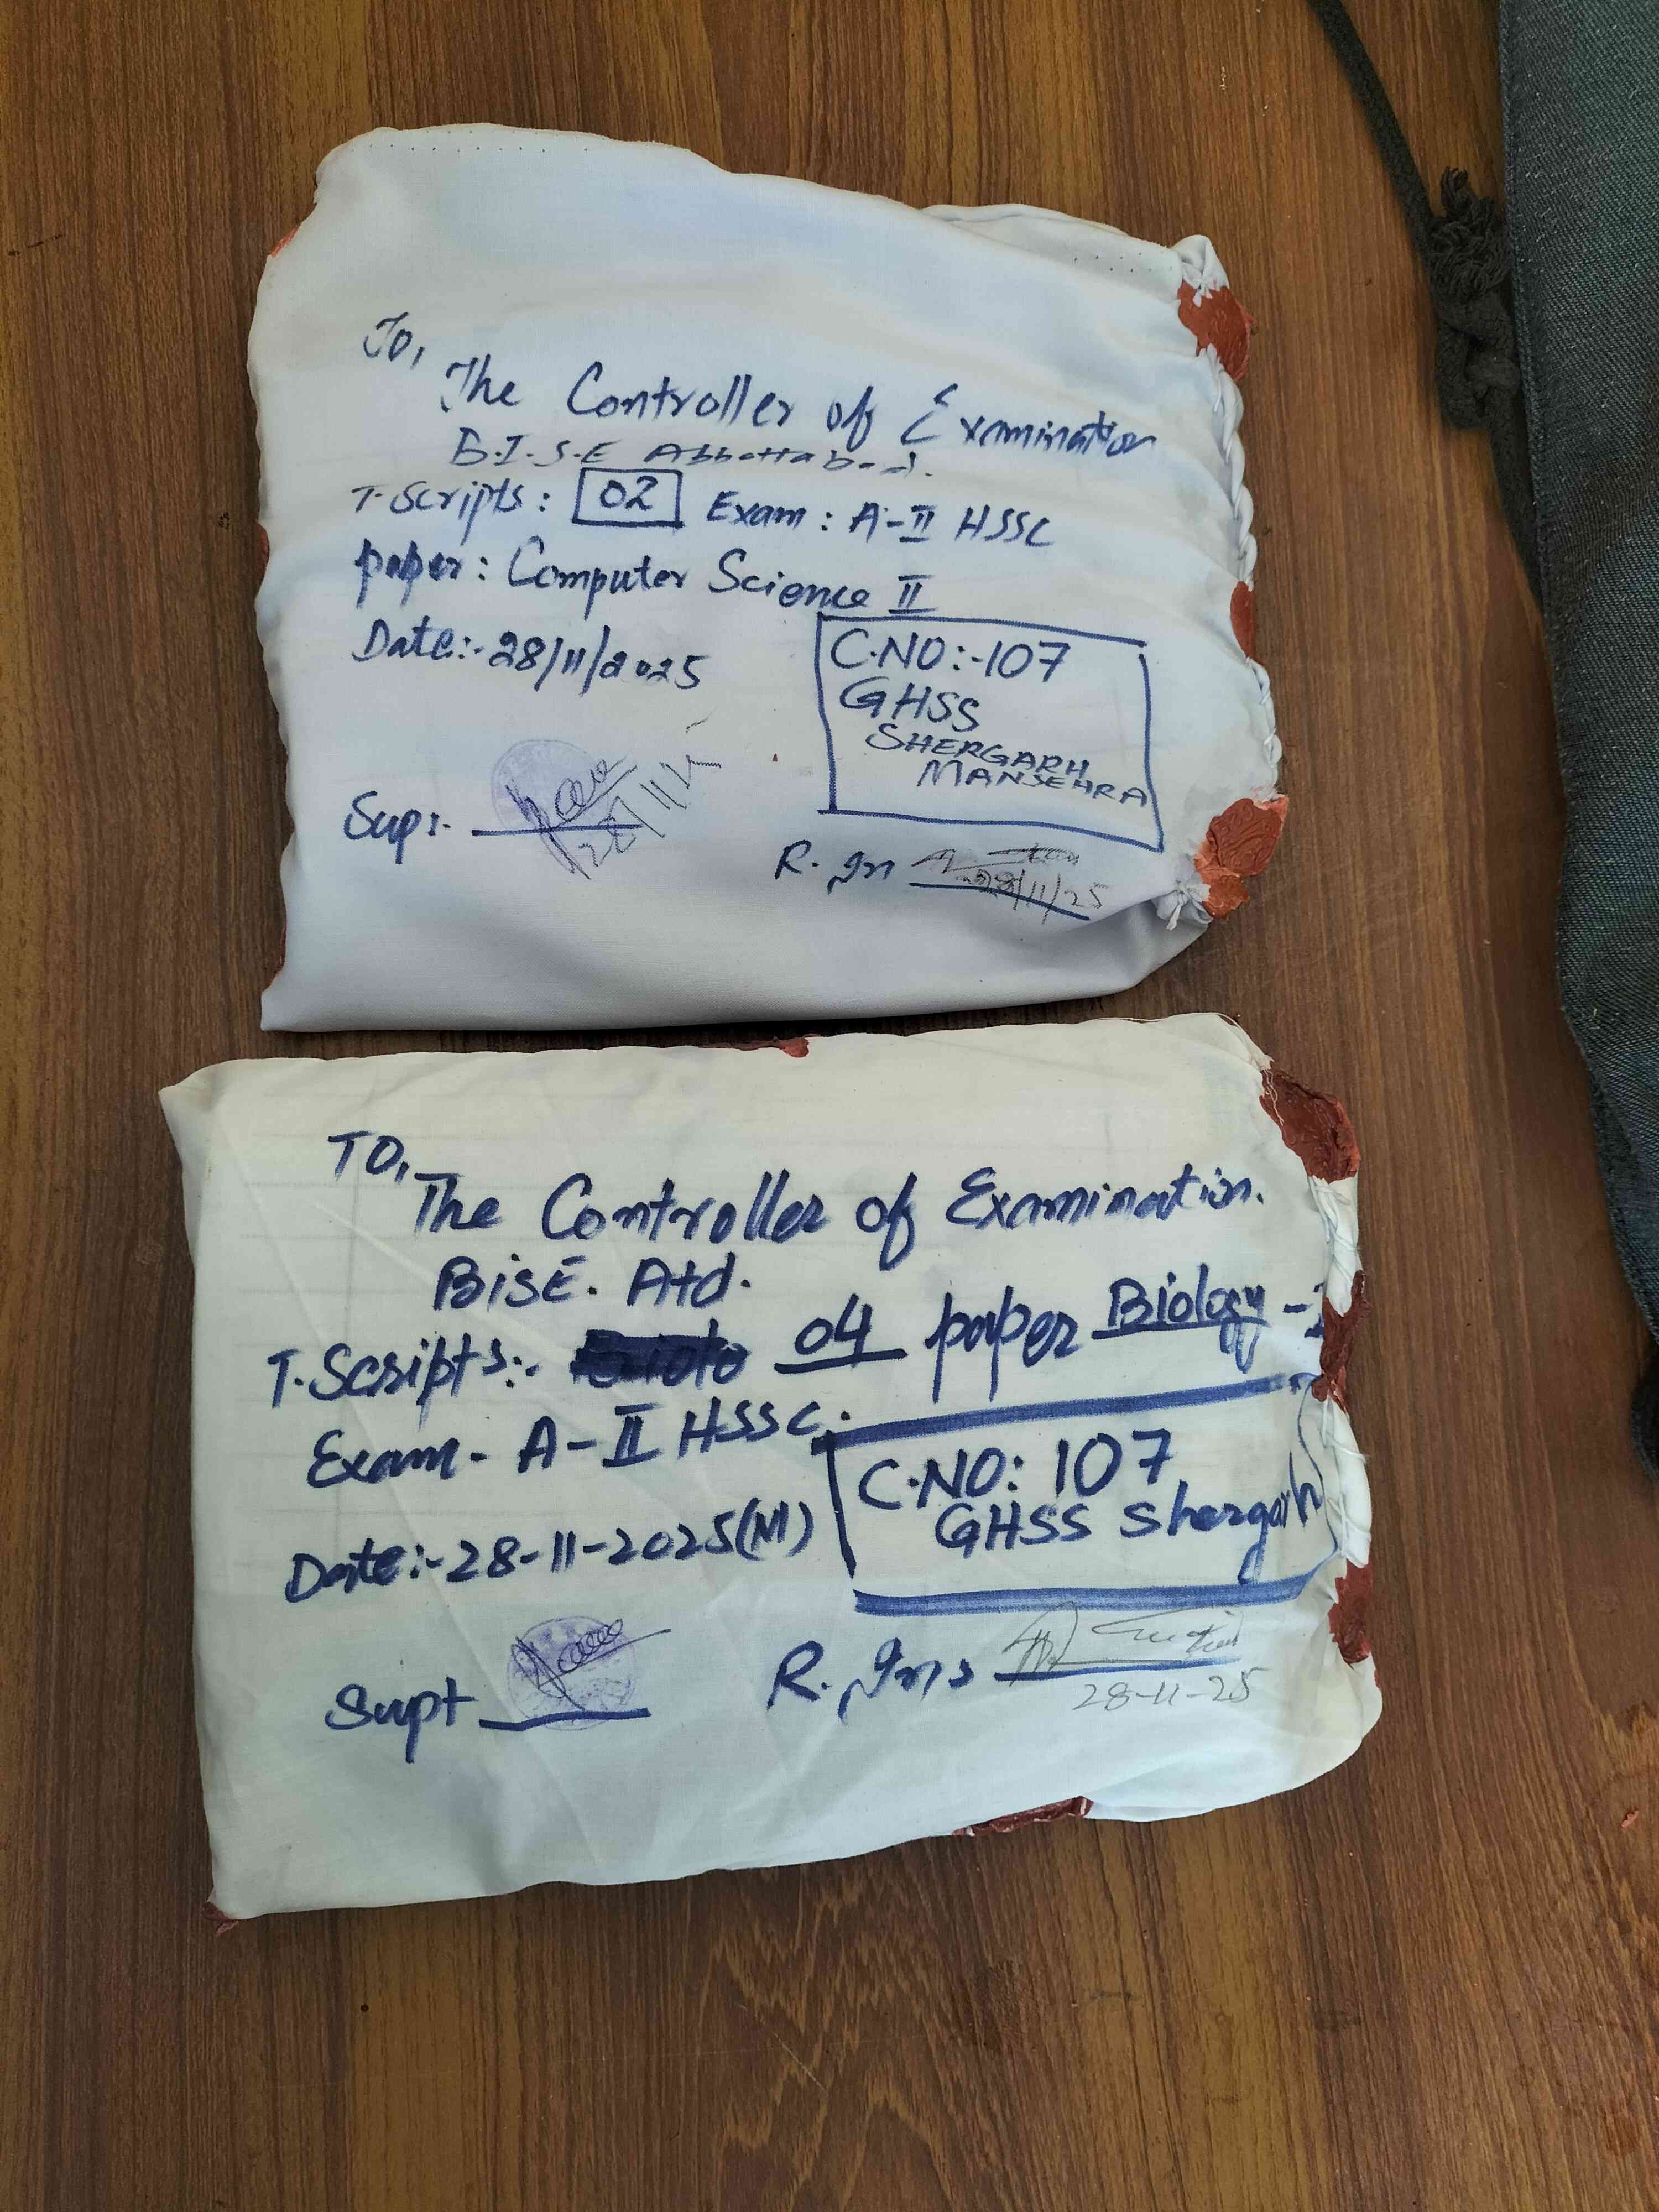 To,
The Controller of Examination
B.I.S.E Abbottabad.
T.Scripts: 02 Exam: A-II HSSC
paper: Computer Science II
Date:- 28/11/2025
C.NO:-107
GHSS
SHERGARH
MANSEHRA
Sup:-
28/11/25
R. Ins
28/11/25
TO,
The Controller of Examination.
BISE. Atd.
T.Scripts:- 04 paper Biology -
Exam- A-II HSSC.
C.NO: 107
GHSS Shergarh
Date:- 28-11-2025(M)
Supt
R. Ins
28-11-25